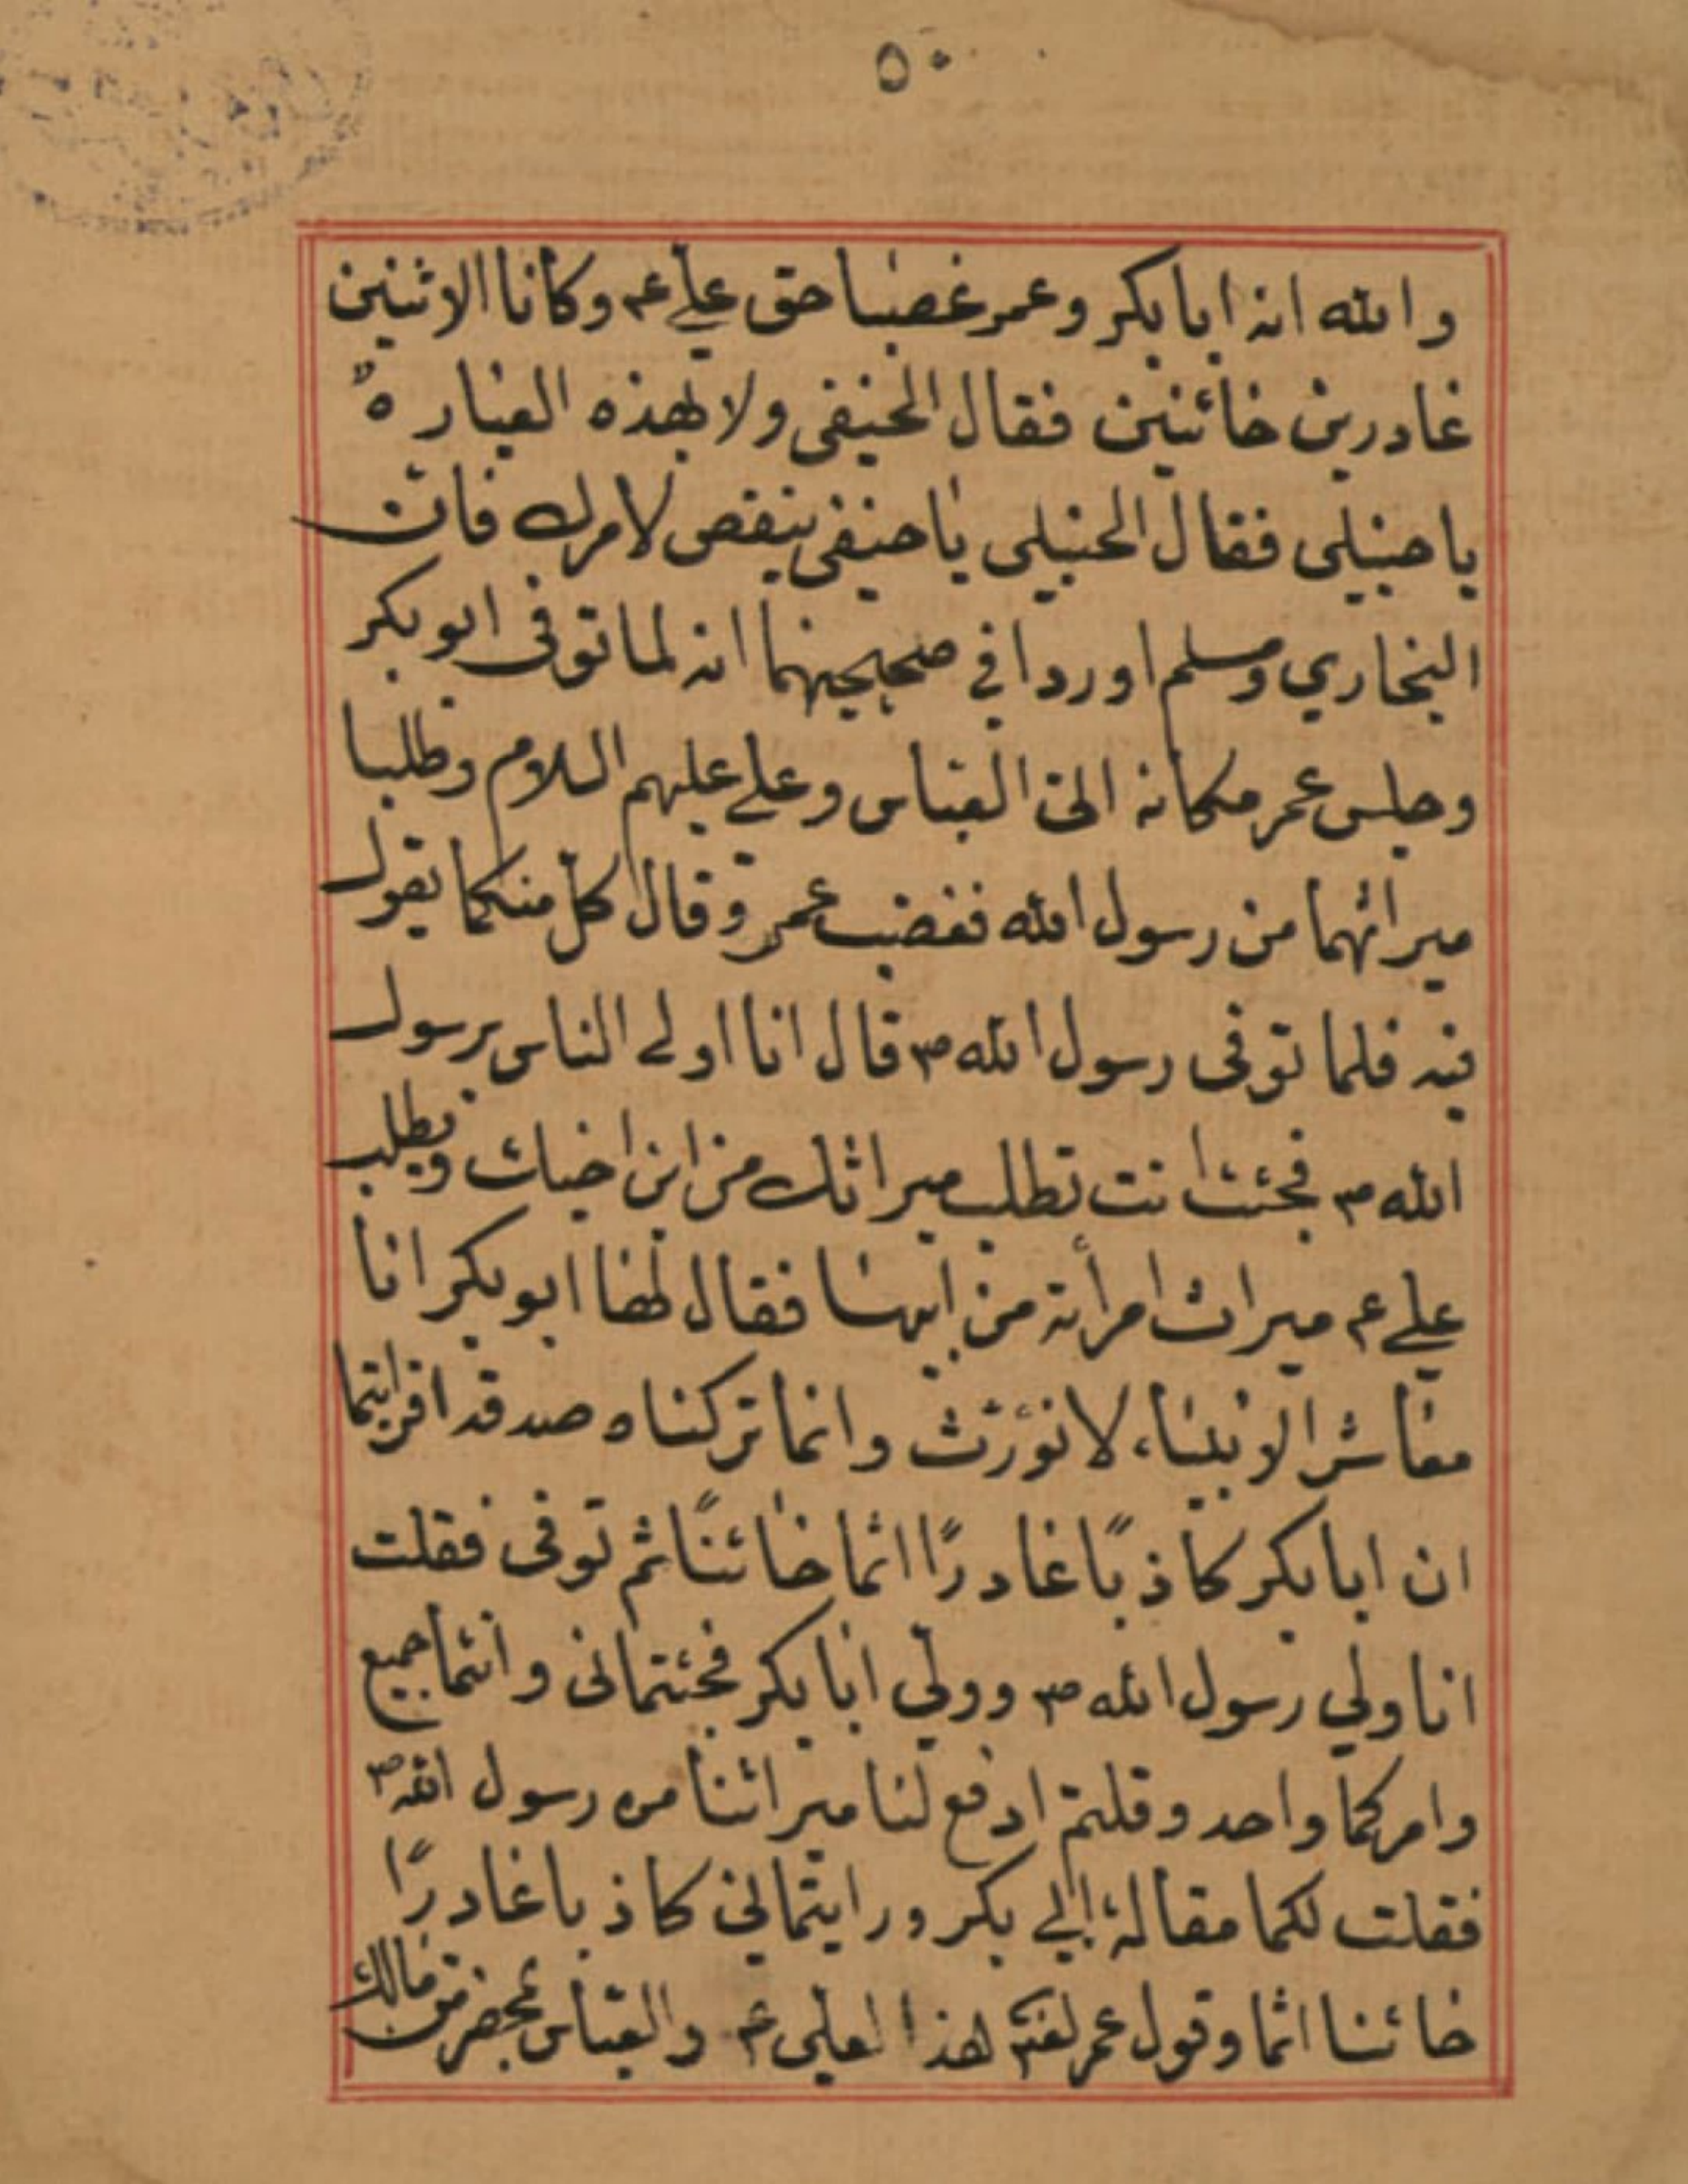 ٥٠
والله انه ابا بكر وعمر غصبا حق علي ع م وكانا الاثنين
غادرين خائنين فقال الحنيفى ولا بهذه العبارة
يا حنبلى فقال الحنبلى يا حنيفى ينقص لامرك فان
البخاري ومسلم اوردا في صحيحيهما انه لما توفى ابو بكر
وجلس عمر مكانه اتى العباس وعلي عليهم السلام وطلبا
ميراثهما من رسول الله فغضب عمر وقال كل منكما يقول
فيه فلما توفى رسول الله ص م قال انا اولى الناس برسول
الله ص م فجئت انت تطلب ميراثك من ابن اخيك ويطلب
علي ع م ميراث امرأته من ابيها فقال لهما ابو بكر انا
معاشر الانبياء لا نوّرث وانما تركناه صدقه افرايتما
ان ابا بكر كاذبًا غادرًا اثما خائنًا ثم توفى فقلت
انا ولي رسول الله ص م وولّي ابا بكر فجئتمانى وانتما جميع
وامركما واحد وقلتم ادفع لنا ميراثنا من رسول الله ص م
فقلت لكما مقالة ابي بكر ورايتماني كاذبا غادرًا
خائنا اثما وقول عمر هذا لعلى ع م والعباس بمحضر من مالك